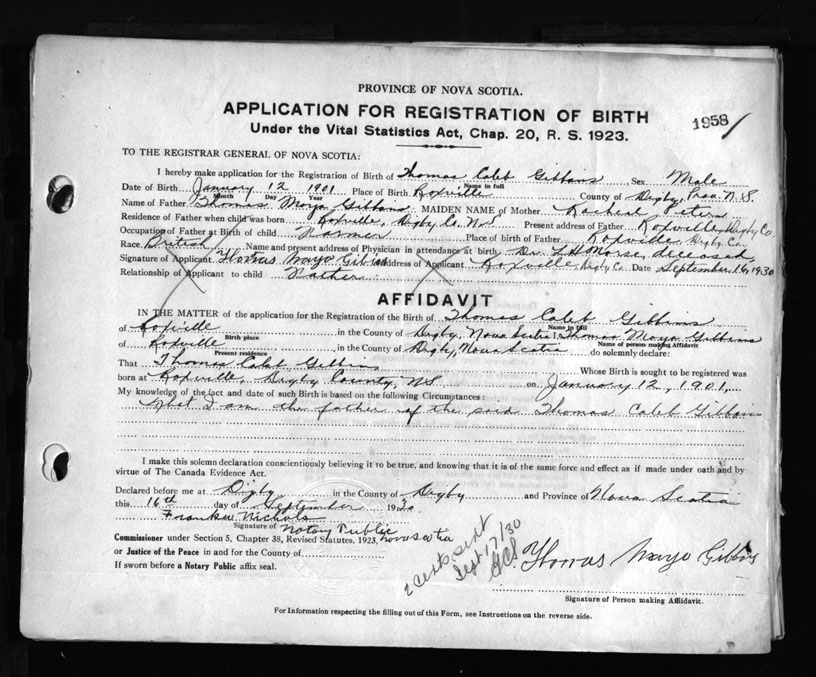 PROVINCE OF NOVA SCOTIA.
APPLICATION FOR REGISTRATION OF BIRTH
1958
Under the Vital Statistics Act, Chap. 20, R. S. 1923.
TO THE REGISTRAR GENERAL OF NOVA SCOTIA:
I hereby make application for the Registration of Birth of Thomas Caleb Gibbons Sex Male
Name in full
Date of Birth January 12 1901 Place of Birth Roxville County of Digby, Prov. N.S.
Month Day Year
Name of Father Thomas Mayo Gibbons MAIDEN NAME of Mother Rachael Peters
Residence of Father when child was born Roxville, Digby Co. N.S. Present address of Father Roxville, Digby Co
Occupation of Father at Birth of child Farmer Place of birth of Father Roxville, Digby Co.
Race British Name and present address of Physician in attendance at birth Dr. Morse, deceased
Signature of Applicant Thomas Mayo Gibbons Address of Applicant Roxville, Digby Co. Date September 16, 1930
Relationship of Applicant to child Father
AFFIDAVIT
IN THE MATTER of the application for the Registration of the Birth of Thomas Caleb Gibbons
Name in full
of Roxville in the County of Digby, Nova Scotia I Thomas Mayo Gibbons
Birth place Name of person making Affidavit
of Roxville in the County of Digby, Nova Scotia do solemnly declare:
Present residence
That Thomas Caleb Gibbons Whose Birth is sought to be registered was
born at Roxville, Digby County, N.S. on January 12, 1901,
My knowledge of the fact and date of such Birth is based on the following Circumstances:
That I am the father of the said Thomas Caleb Gibbons
I make this solemn declaration conscientiously believing it to be true, and knowing that it is of the same force and effect as if made under oath and by
virtue of The Canada Evidence Act.
Declared before me at Digby in the County of Digby and Province of Nova Scotia
this 16th day of September 1930
Frank W Nichols
Signature of Notary Public
Commissioner under Section 5, Chapter 38, Revised Statutes, 1923, Nova Scotia
or Justice of the Peace in and for the County of
If sworn before a Notary Public affix seal.
2 certs sent
Sept 17/30
Thomas Mayo Gibbons
Signature of Person making Affidavit.
For Information respecting the filling out of this Form, see Instructions on the reverse side.